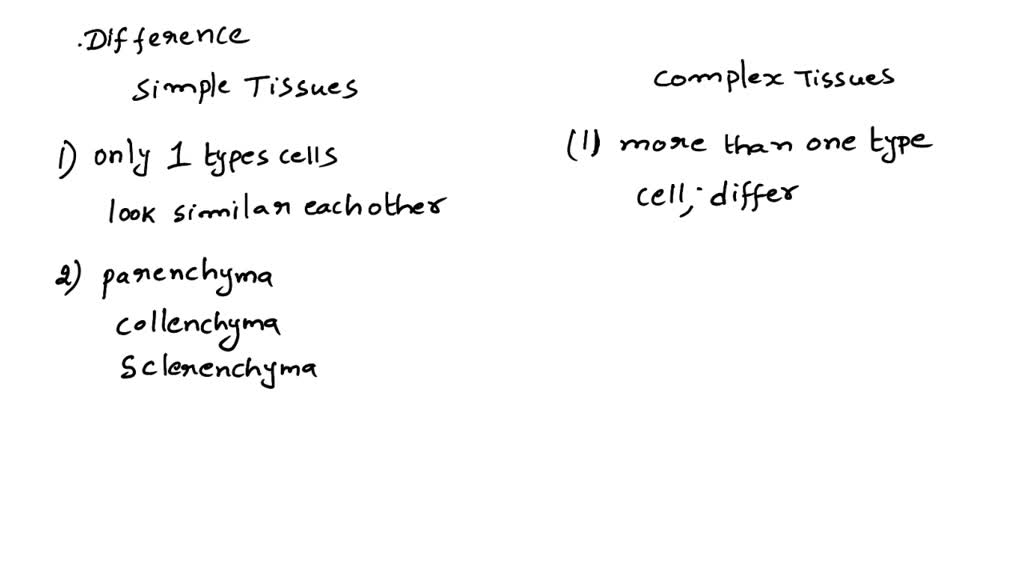 .Difference
Simple Tissues
1) only 1 types cells
look similar eachother
2) parenchyma
collenchyma
Sclerenchyma
Complex Tissues
(1) more than one type
cell; differ